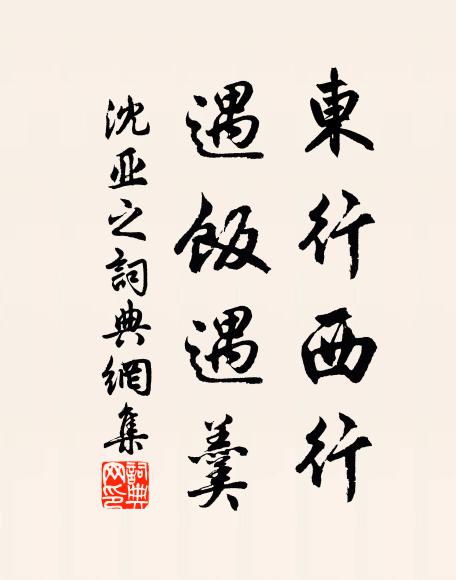 東行西行
遇飯遇羹
沈亚之詞典網集
詞典网印